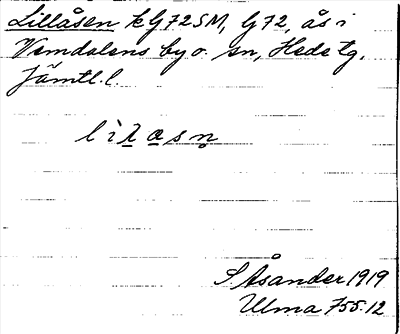 Lillåsen kG72SM, G72, ås i
Vemdalens by o. sn, Hede tg,
Jämtl. l.
lìlasn̥
S. Åsander 1919
Ulma 755:12